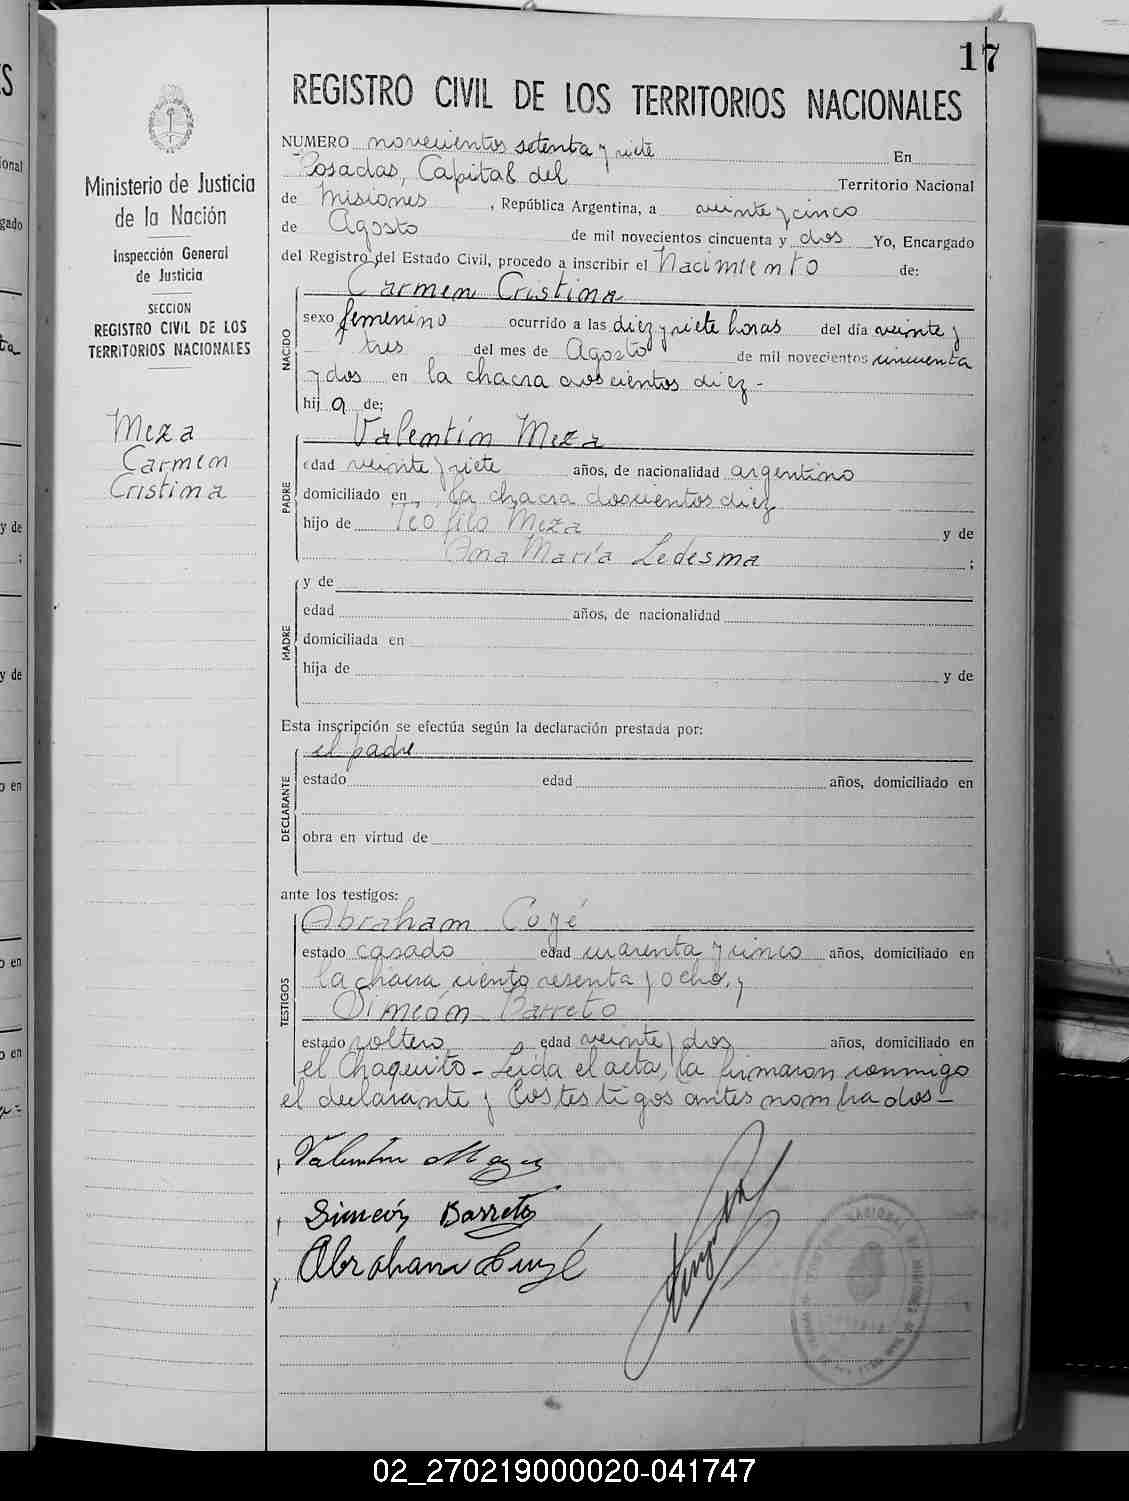 17
REGISTRO CIVIL DE LOS TERRITORIOS NACIONALES
Ministerio de Justicia
de la Nación
Inspección General
de Justicia
SECCION
REGISTRO CIVIL DE LOS
TERRITORIOS NACIONALES
Meza
Carmen
Cristina
NUMERO novecientos setenta y siete En
Posadas, Capital del Territorio Nacional
de Misiones, República Argentina, a veinte y cinco
de Agosto de mil novecientos cincuenta y dos Yo, Encargado
del Registro del Estado Civil, procedo a inscribir el Nacimiento de:
NACIDO
Carmen Cristina
sexo femenino ocurrido a las diez y siete horas del día veinte y
tres del mes de Agosto de mil novecientos cincuenta
y dos en la chacra doscientos diez-
hija de;
PADRE
Valentín Meza
edad veinte y siete años, de nacionalidad argentino
domiciliado en la chacra doscientos diez
hijo de Teófilo Meza y de
Ana María Ledesma ;
MADRE
y de
edad años, de nacionalidad
domiciliada en
hija de y de
Esta inscripción se efectúa según la declaración prestada por:
DECLARANTE
el padre
estado edad años, domiciliado en
obra en virtud de
ante los testigos:
TESTIGOS
Abraham
estado casado edad cuarenta y cinco años, domiciliado en
la chacra ciento sesenta y ocho, y
Simeón Barreto
estado soltero edad veinte y dos años, domiciliado en
el Chaquito - Leída el acta, la firmaron conmigo
el declarante y los testigos antes nombrados-
Valentin
Simeón Barreto
Abraham
02_270219000020-041747